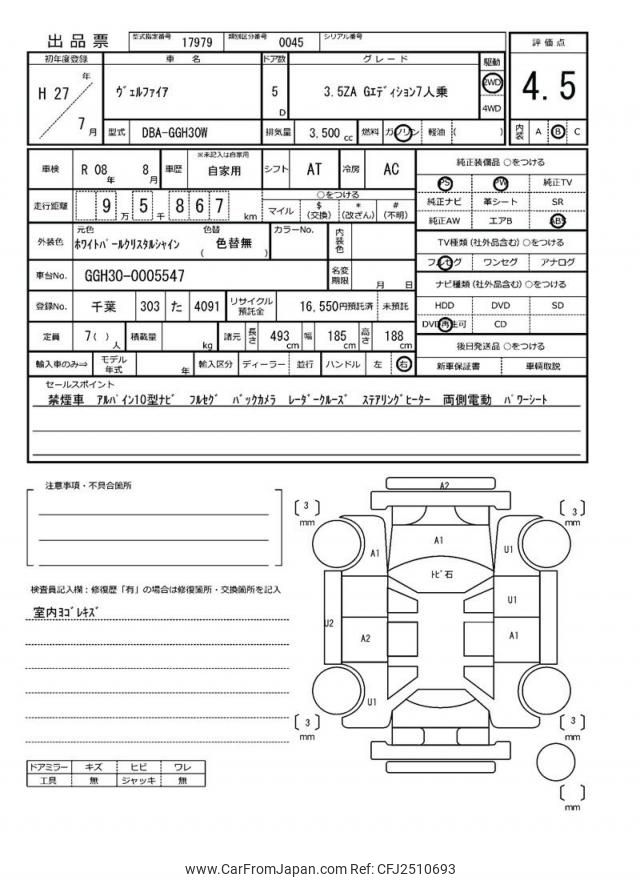 出品票 型式指定番号 17979 類別区分番号 0045 シリアル番号
初年度登録 車名 ドア数 グレード 駆動 評価点
H 27年 ヴェルファイア 5D 3.5ZA Gエディション7人乗 2WD 4.5
7月 4WD
型式 DBA-GGH30W 排気量 3,500cc 燃料 ガソリン 軽油 ( ) 内装 A B C
車検 R 08年 8月 車歴 ※未記入は自家用 自家用 シフト AT 冷房 AC
純正装備品 ○をつける
PS PW 純正TV
走行距離 95万5千867km
○をつける
マイル $(交換) *(改ざん) #(不明)
純正ナビ 革シート SR
純正AW エアB ABS
外装色 元色 ホワイトパールクリスタルシャイン 色替 ( 色替無 ) カラーNo. 内装色
TV種類(社外品含む) ○をつける
フルセグ ワンセグ アナログ
車台No. GGH30-0005547 名変期限 月 日
ナビ種類(社外品含む) ○をつける
HDD DVD SD
登録No. 千葉 303 た 4091 リサイクル預託金 16,550円預託済 未預託
DVD再生可 CD
定員 7( )人 積載量 kg 諸元 長さ 493cm 幅 185cm 高さ 188cm
後日発送品 ○をつける
輸入車のみ⇒ モデル年式 年 輸入区分 ディーラー 並行 ハンドル 左 右
新車保証書 車輌取説
セールスポイント
禁煙車 アルパイン10型ナビ フルセグ バックカメラ レーダークルーズ ステアリングヒーター 両側電動 パワーシート
注意事項・不具合箇所
検査員記入欄:修復歴「有」の場合は修復箇所・交換箇所を記入
室内ヨゴレキズ
ドアミラー キズ ヒビ ワレ
工具 無 ジャッキ 無
A2
[3]mm [3]mm
A1
A1 U1
トビ石
U1
U2
A2 A1
U1
[3]mm [3]mm
[ ]mm
www.CarFromJapan.com Ref: CFJ2510693